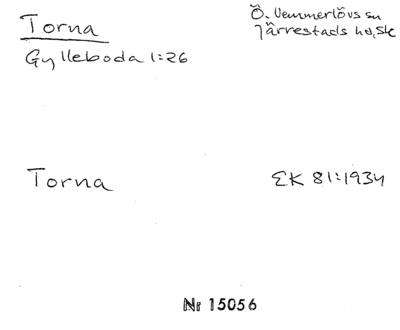 Torna
Ö. Vemmerlövs sn
Järrestads hd, Sk
Gylleboda 1:26
Torna
EK 81:1934
Nr 15056